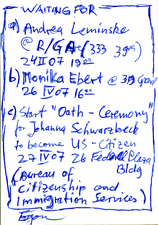 WAITING FOR
a) Andrea Leminske
@ R/GA (333 39th)
24 II 07 19 00
b) Monika Ebert @ 319 Grand
26 IV 07 16 00
c) Start "Oath-Ceremony"
for Johanna Schwarzbeck
to become US-Citizen
27 IV 07 26 Federal Plaza
Bldg
(Bureau of
Citizenship and
Immigration Services)